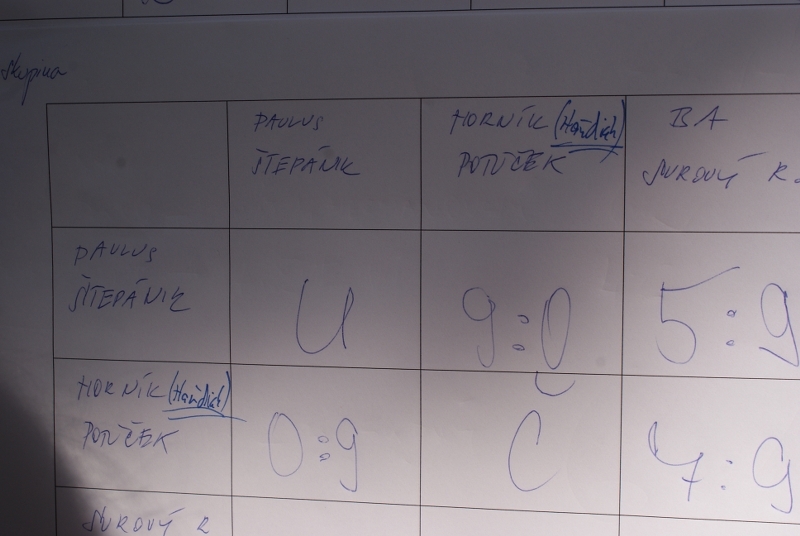 Skupina
PAULUS
ŠTEPÁNIK
HORNÍK (Handlich)
POTŮČEK
BA
SUROVÝ R.
PAULUS
ŠTEPÁNIK
U
9:0
5:9
HORNÍK (Handlich)
POTŮČEK
0:9
C
4:9
SUROVÝ R